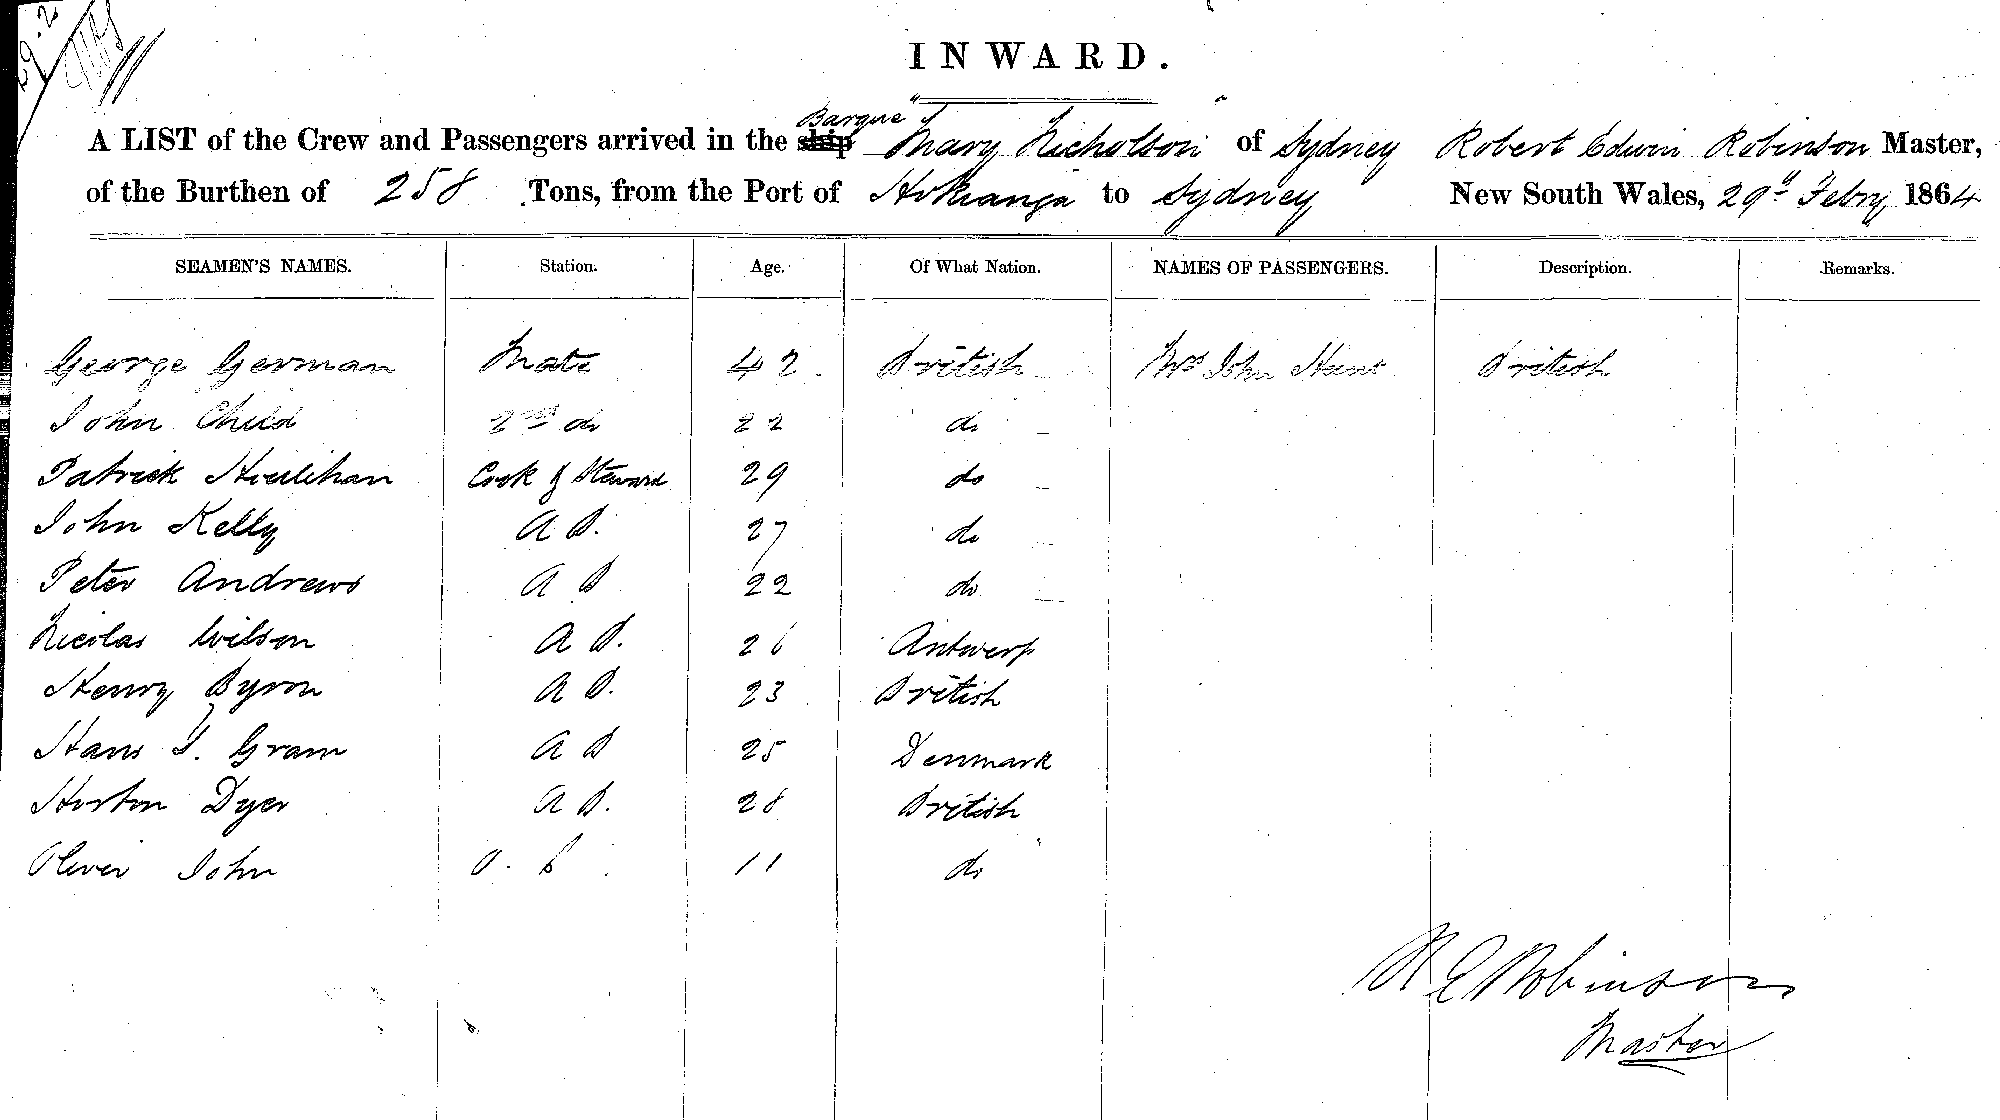 29.2
INWARD.
A LIST of the Crew and Passengers arrived in the ship Barque "Mary Nicholson" of Sydney Robert Edwin Robinson Master,
of the Burthen of 258 Tons, from the Port of Hokianga to Sydney New South Wales, 29th Febry 1864
SEAMEN'S NAMES. Station. Age. Of What Nation. NAMES OF PASSENGERS. Description. Remarks.
George German Mate 42 British Mrs John Hunt British
John Child 2nd do 22 do
Patrick Houlihan Cook & Steward 29 do
John Kelly A B. 27 do
Peter Andrews A B 22 do
Nicolas Wilson A B. 26 Antwerp
Henry Byron A B. 23 British
Hans J. Gram A B 25 Denmark
Horton Dyer A B. 28 British
Oliver John 11 do
R E Robinson
Master